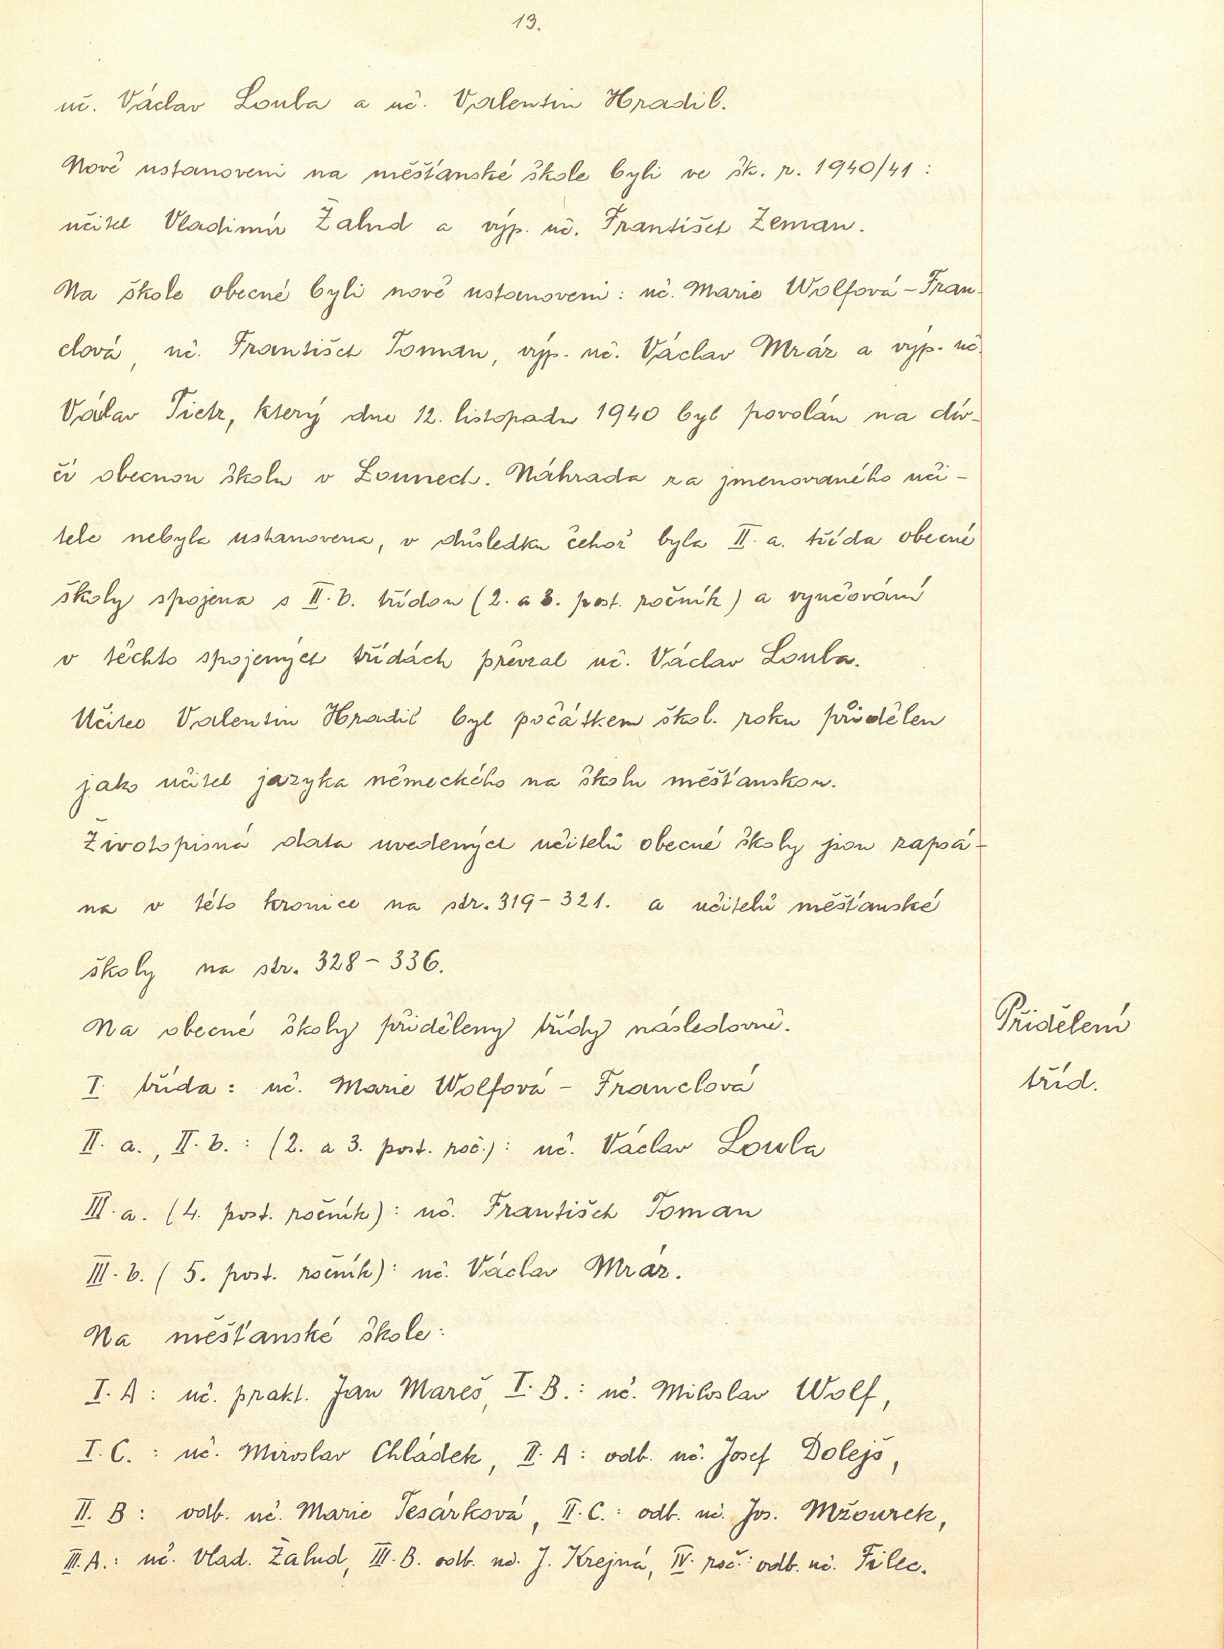 13.
uč. Václav Louba a uč. Valentin Hradil.
Nově ustanoveni na měšťanské škole byli ve šk. r. 1940/41 :
učitel Vladimír Žalud a výp. uč. František Zeman.
Na škole obecné byli nově ustanoveni : uč. Marie Wolfová - Fran-
clová, uč. František Toman, výp. uč. Václav Mráz a výp. uč.
Válav Tietz, který dne 12. listopadu 1940 byl povolán na dív-
čí obecnou školu v Lounech. Náhrada za jmenovaného uči-
tele nebyla ustanovena, v důsledku čehož byla II. a. třída obecné
školy spojena s II. b. třídou (2. a 3. post. ročník) a vyučování
v těchto spojených třídách převzal uč. Václav Louba.
Učitel Valentin Hradil byl počátkem škol. roku přidělen
jako učitel jazyka německého na školu měšťanskou.
Životopisná data uvedených učitelů obecné školy jsou zapsá-
na v této kronice na str. 319 - 321. a učitelů měšťanské
školy na str. 328 - 336.
Na obecné školy přiděleny třídy následovně.
Přidělení
tříd.
I. třída : uč. Marie Wolfová - Franclová
II. a., II. b. : (2. a 3. post. roč.) : uč. Václav Louba
III. a. (4. post. ročník) : uč. František Toman
III. b. ( 5. post. ročník) : uč. Václav Mráz.
Na měšťanské škole :
I. A : uč. prakt. Jan Mareš, I. B. : uč. Miloslav Wolf,
I. C. : uč. Miroslav Chládek, II. A : odb. uč. Josef Dolejš,
II. B : odb. uč. Marie Tesárková, II. C. : odb. uč. Jos. Mžourek,
III. A. : uč. Vlad. Žalud, III. B. odb. uč. J. Krejná, IV. roč. : odb. uč. Filec.